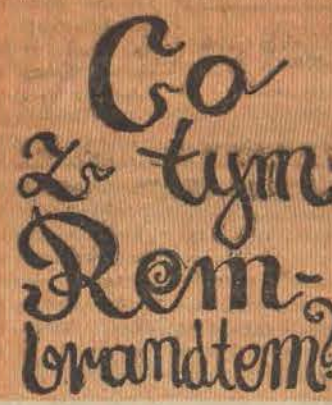 Co
z tym
Rem-
brandtem?